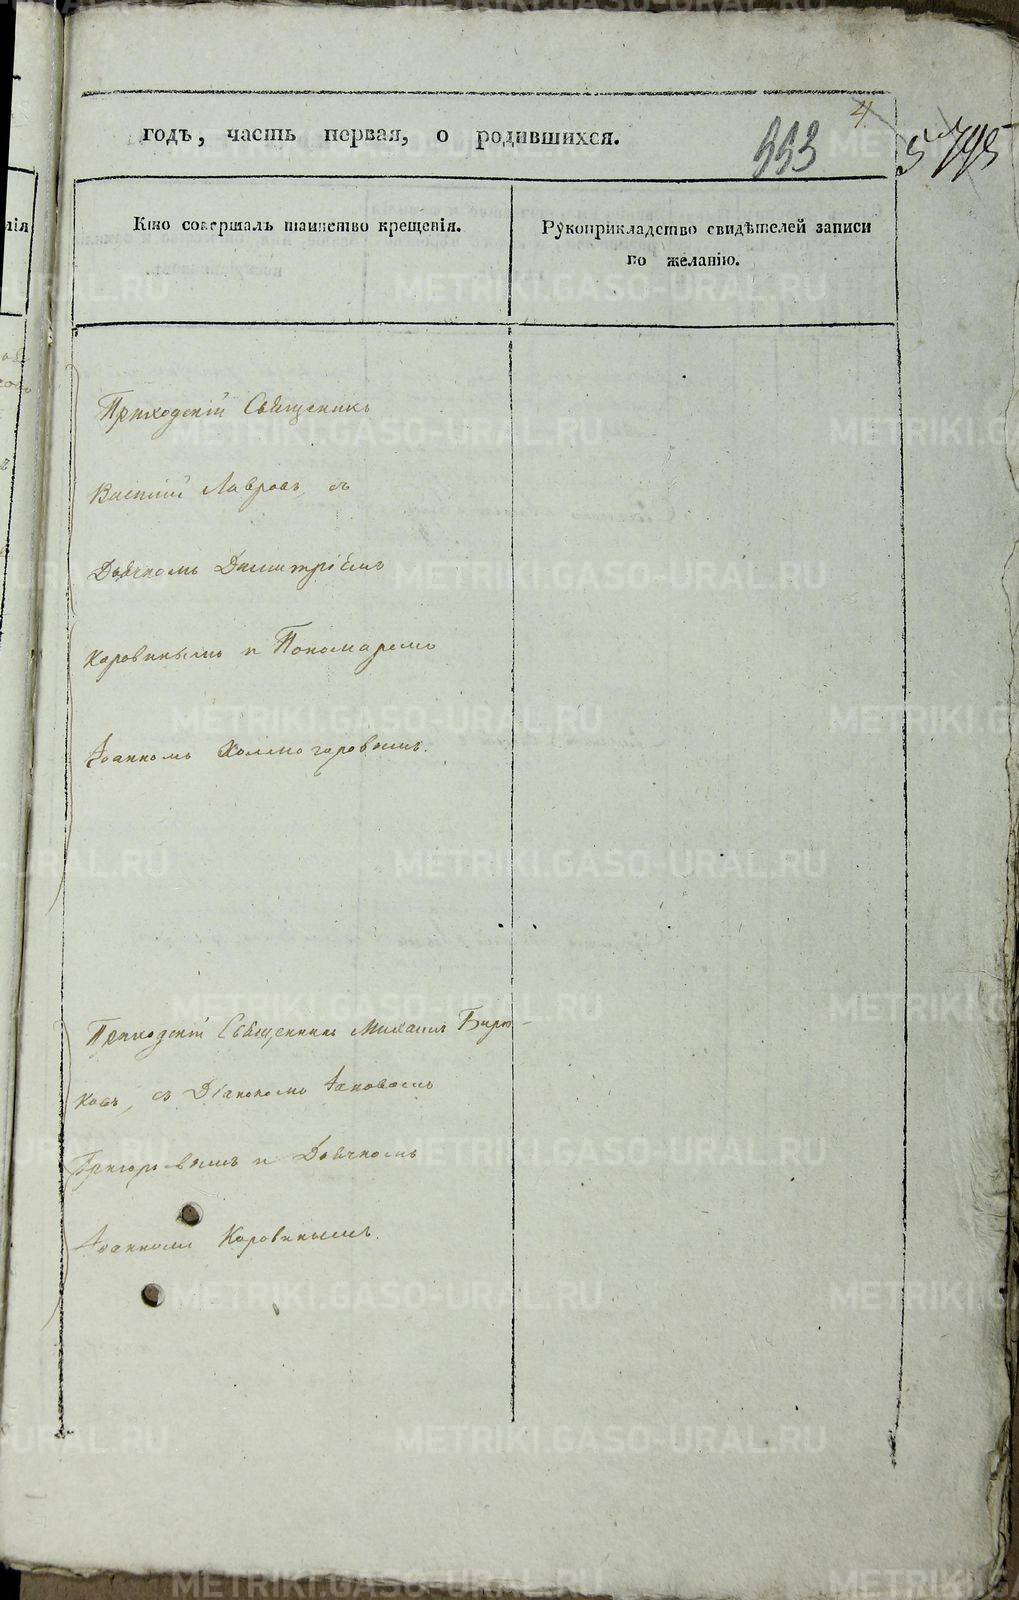 4
годъ, часть первая, о родившихся.
333
5
795
Кто совершалъ таинство крещенія.
Рукоприкладство свидѣтелей записи
по желанію.
Приходскій Священникъ
Василій Лавровъ, съ
Дьячкомъ Димитріемъ
Коровинымъ и Пономаремъ
Іоанномъ Холмогоровымъ.
Приходскій Священникъ Михаилъ Бирю-
ковъ, съ Діакономъ Іаковомъ
Григорьевымъ и Дьячкомъ
Іоанномъ Коровинымъ.
METRIKI.GASO-URAL.RU